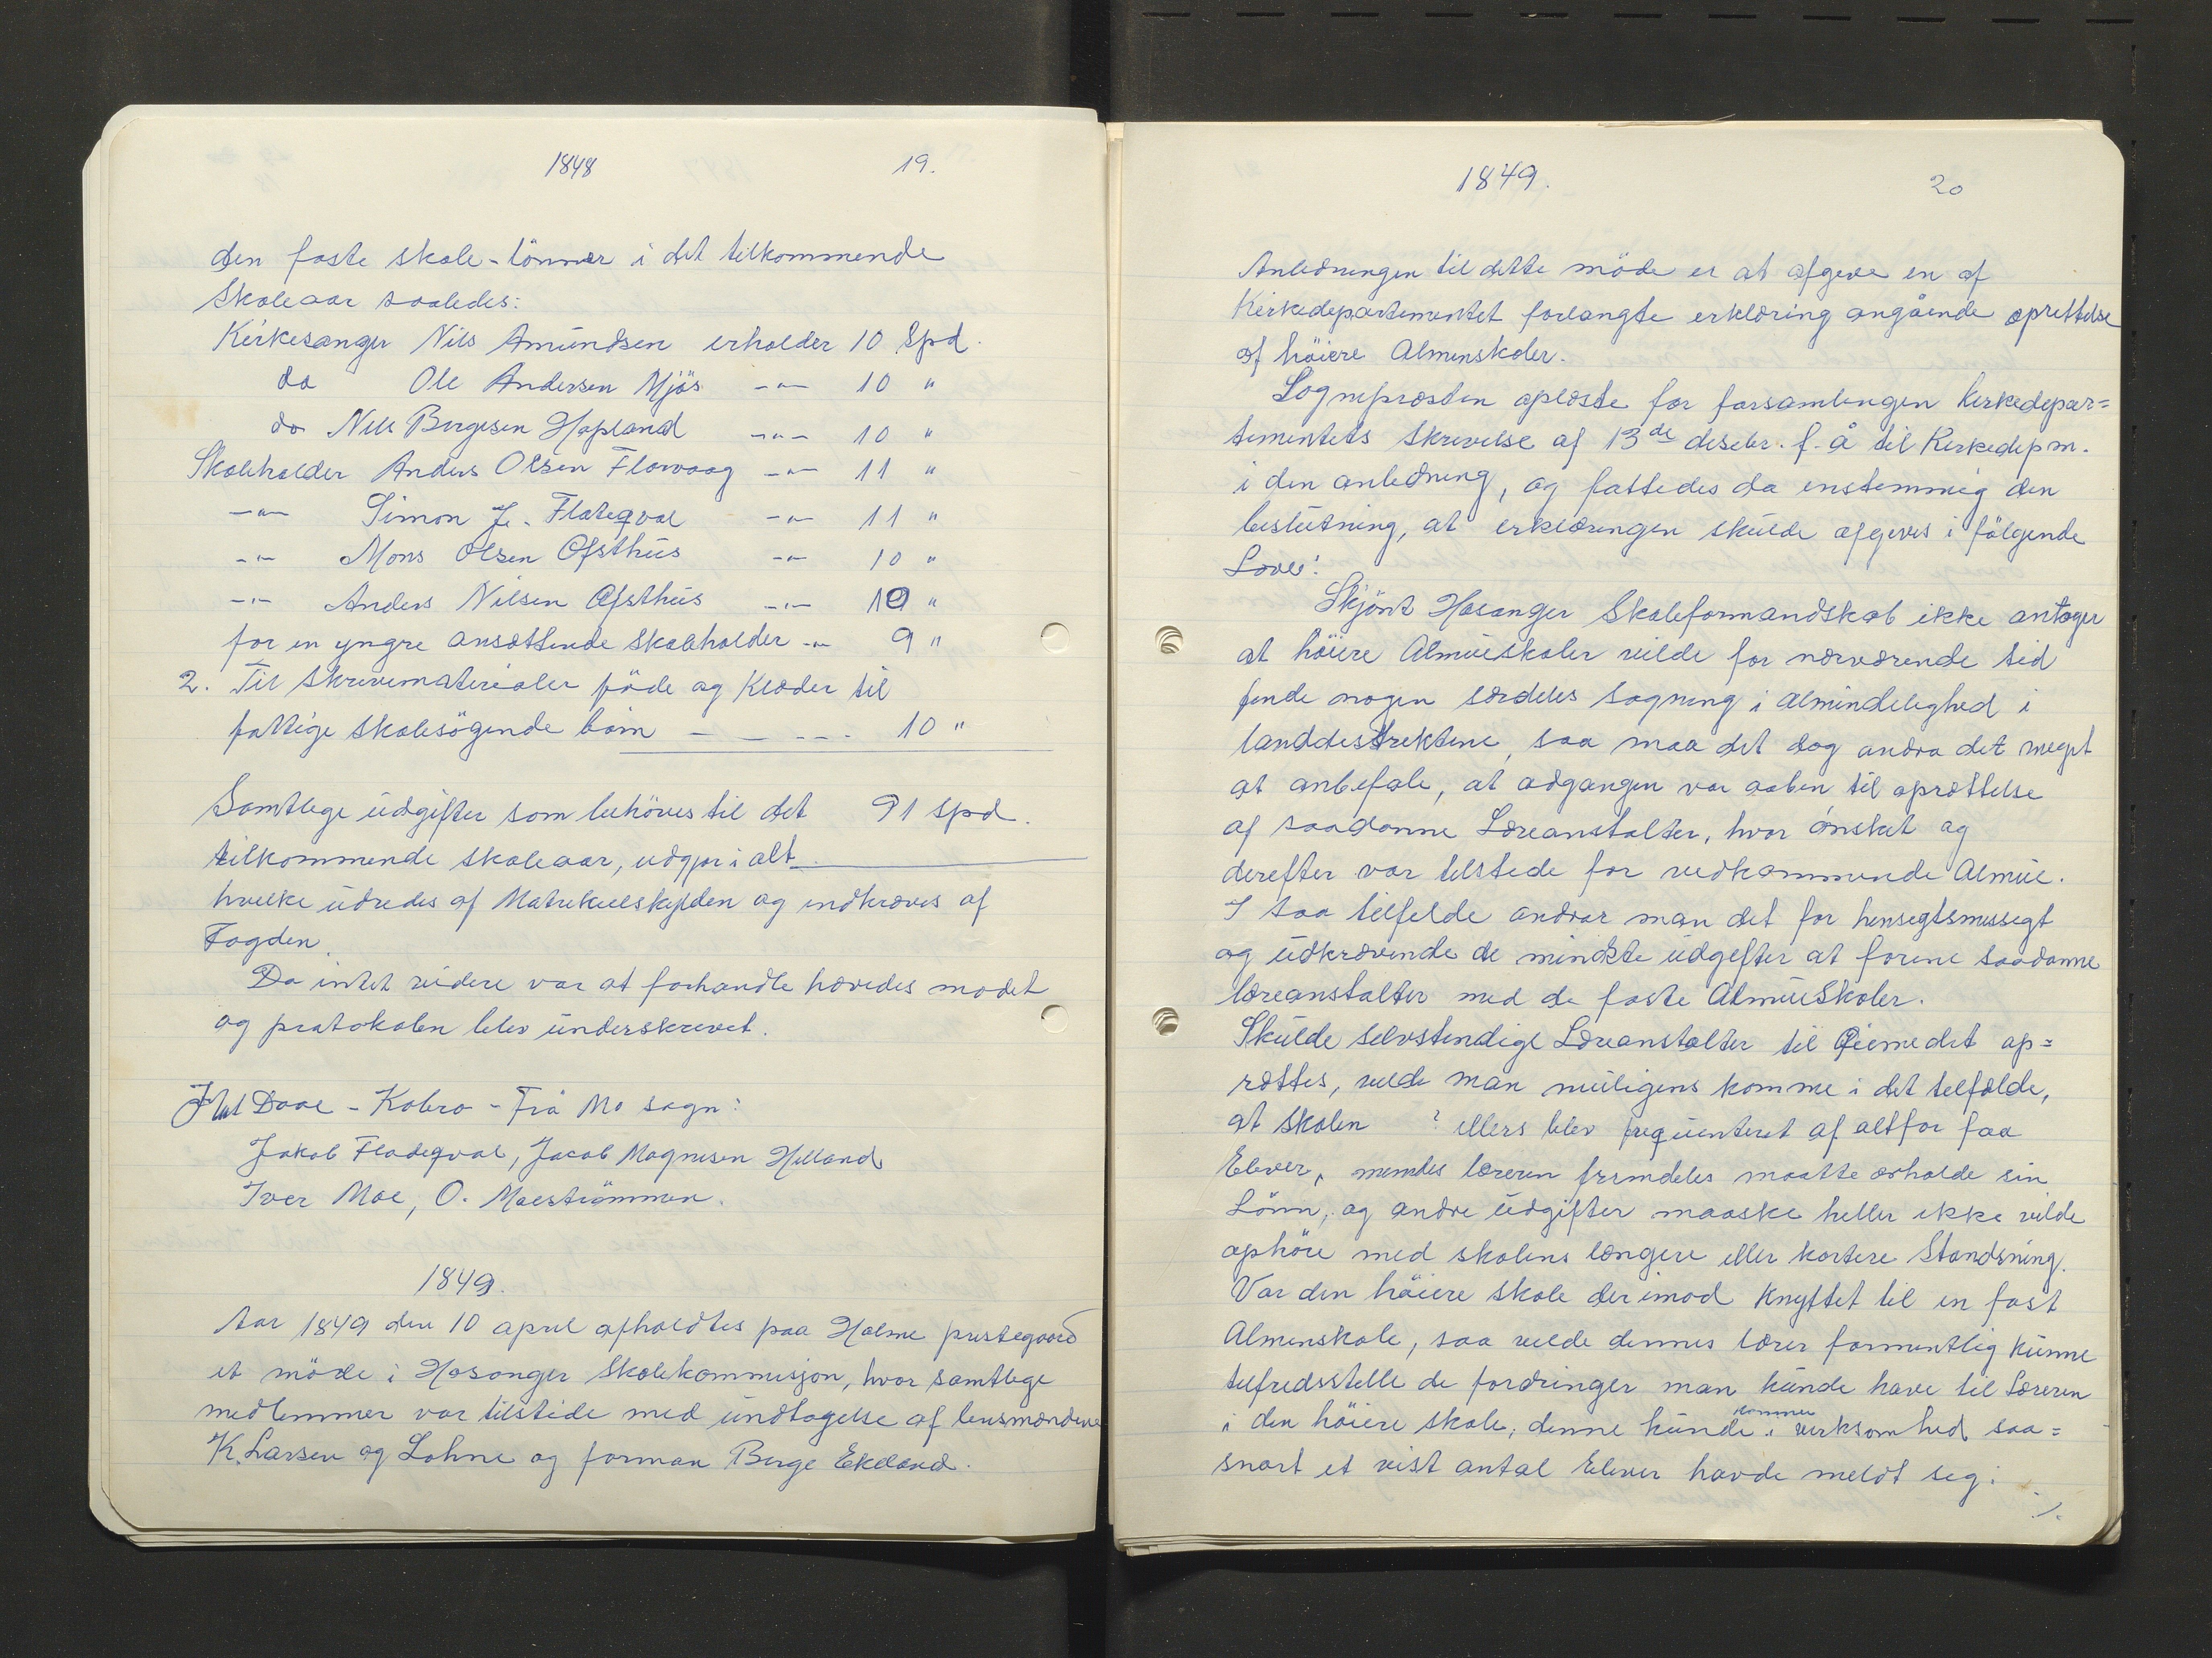 1848 19.
den faste skole-lönner i det tilkommende
Skoleaar saaledes:
Kirkesanger Nils Amundsen erholder 10 Spd.
do Ole Andersen Mjös -"- 10 "
do Nils Bergesen Hopland -"- 10 "
Skoleholder Anders Olsen Florvaag -"- 11 "
-"- Simon J. Flateqval -"- 11 "
-"- Mons Olsen Ofsthus -"- 10 "
-"- Anders Nilsen Ofsthus -"- 10 "
for en yngre ansættende Skoleholder -"- 9 "
2. Til Skrivematerialer föde og Klæder til
fattige skolesögende börn - - - - 10 "
Samtlege udgifter som behöves til det 91 spd.
tilkommende skoleaar, udgjør i alt
hvilke udredes af Matrikulskylden og indkræves af
Fogden.
Da intet videre var at forhandle hævedes mødet
og protokolen blev underskrevet.
Daae - Kobro - Frå Mo sogn:
Jakob Fladeqval, Jacob Magnesen Helland
Iver Moe, O. Moeströmmen.
1849.
Aar 1849 den 10 april afholdtes paa Halme prestegaard
et möde i Hosanger Skolekommisjon, hvor samtlege
medlemmer var tilstede med undtagelse af lensmændene
K. Larsen og Lohne og forman Berge Ekeland.
1849. 20
Anledningen til dette möde er at afgive en af
Kirkedepartementet forlangte erklæring angående oprettelse
af höiere Almenskoler.
Sognepræsten oplæste for forsamlingen kirkedepar=
tementets Skrivelse af 13de desebr. f. å til Kirkedepm.
i den anledning, og fattedes da enstemmig den
beslutning, at erklæringen skulde afgives i fölgende
Skjönt Hosanger Skoleformandskab ikke antager
at höiere Almueskoler vilde for nærværende tid
finde nogen særdeles søgning i almindelighed i
landdistriktene, saa maa det dog andra det meget
at anbefale, at adgangen var aaben til oprættelse
af saadanne Læreanstalter, hvor ønsket og
derefter var tilstede for vedkommende Almue.
I saa tilfelde andrar man det for hensegtsmessegt
og udkrævende de mindste udgefter at forene saadanne
læreanstalter med de faste Almueskoler.
Skulde selvstendige Læreanstalter til Øiemedet op=
rættes, vilde man muligens komme i det telfælde,
at skolen ? ellers blev frequenteret af altfor faa
Elever, memdes læreren fremdeles maatte erholde sin
Lönn, og andre udgifter maaske heller ikke vilde
ophöre med skolens længere eller kortere Standsning.
Var den höiere skole derimod knyttet til en fast
Almenskole, saa vilde dennes lærer formentlig kunne
tilfredsstelle de fordringer man kunde have til Læreren
i den höiere skole; denne kunde komme i verksomhed saa=
snart et vist antal Elever havde meldt seg.
./.